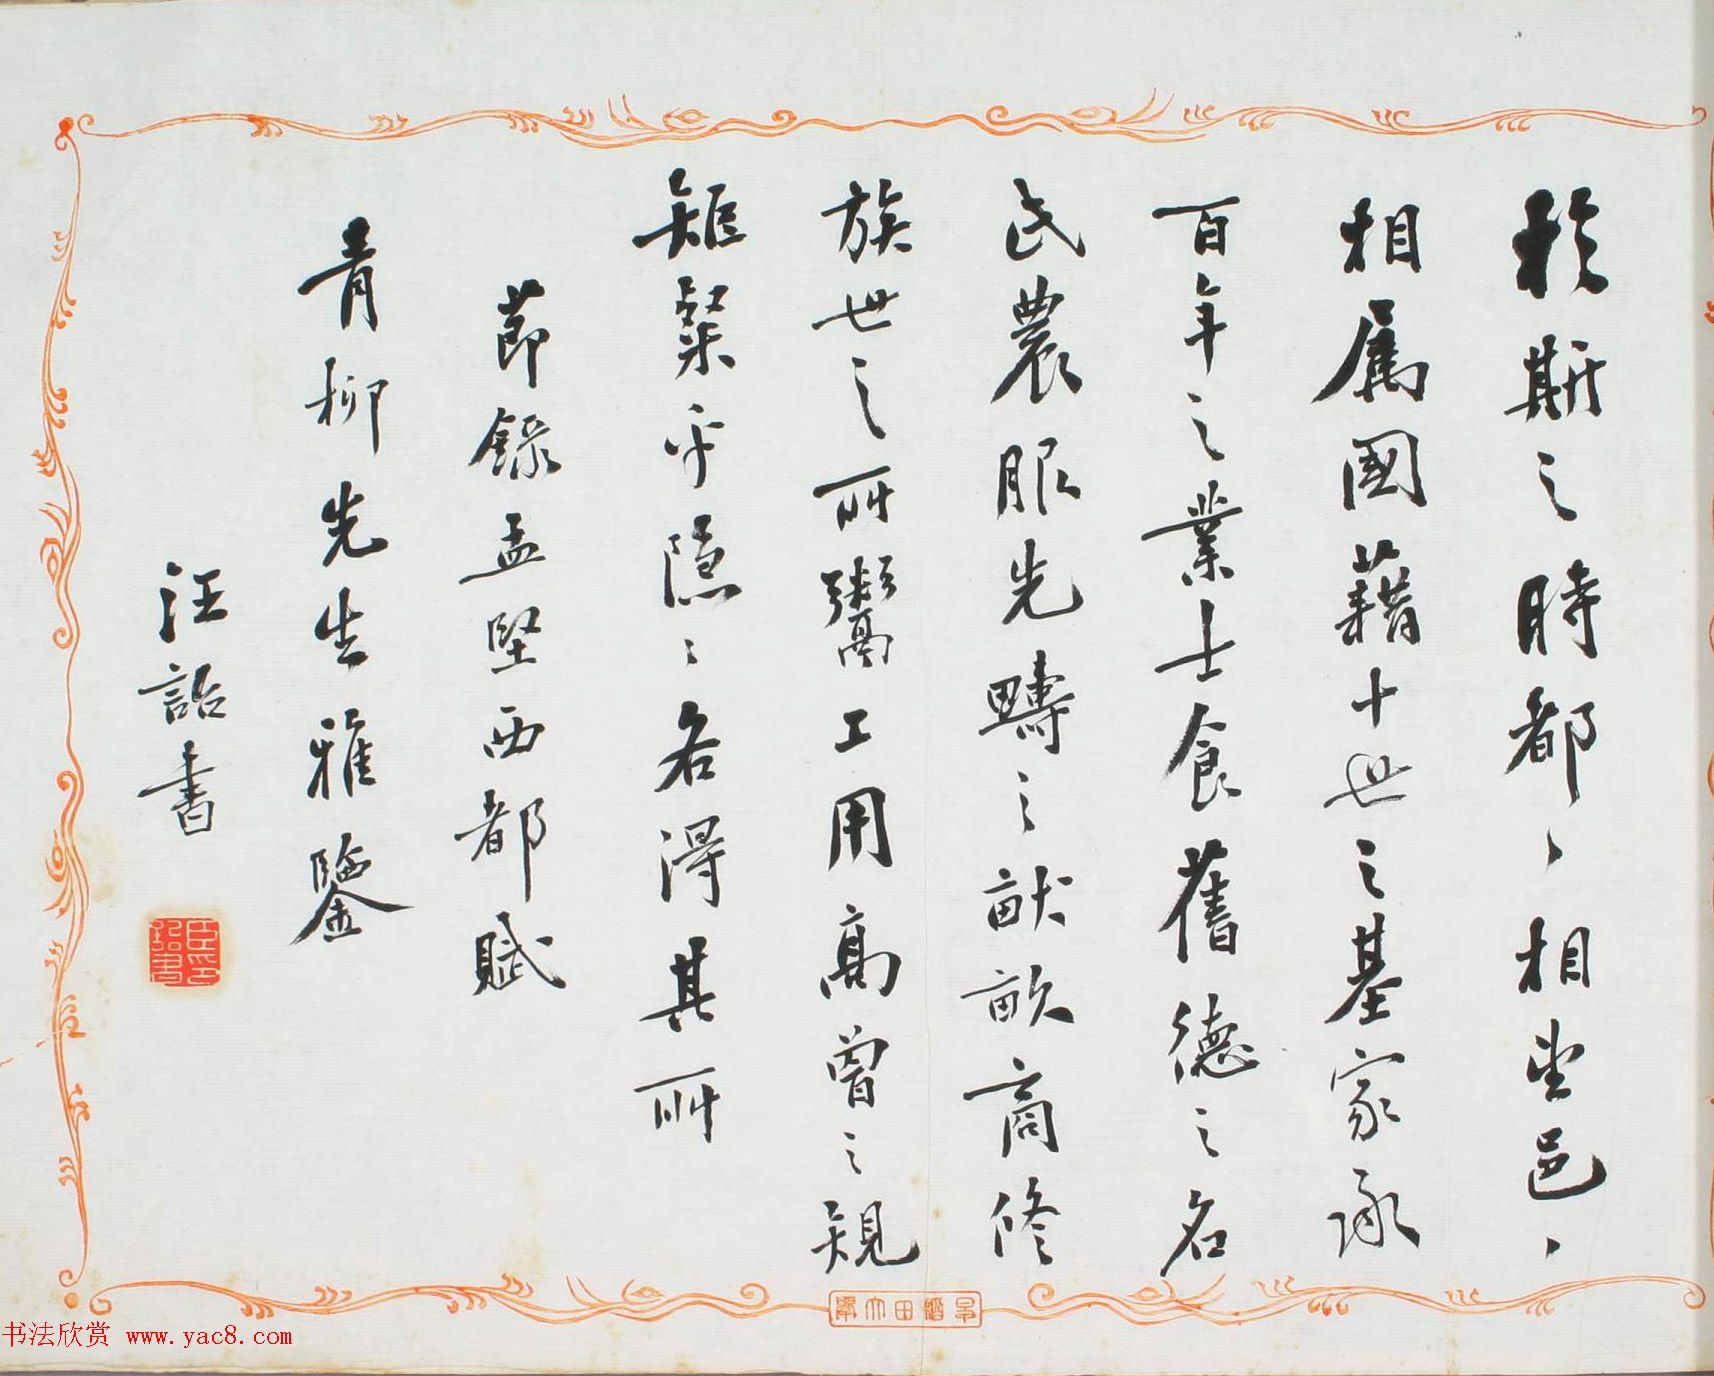 於斯之時都〻相望邑〻
相属國藉十世之基家承
百年之業士食舊德之名
氏農服先疇之畎畝商修
族世之所鬻工用高曾之規
矩粲乎隱〻各得其所
節録孟堅西都賦
青柳先生雅鑒
汪詔書
书法欣赏 www.yac8.com